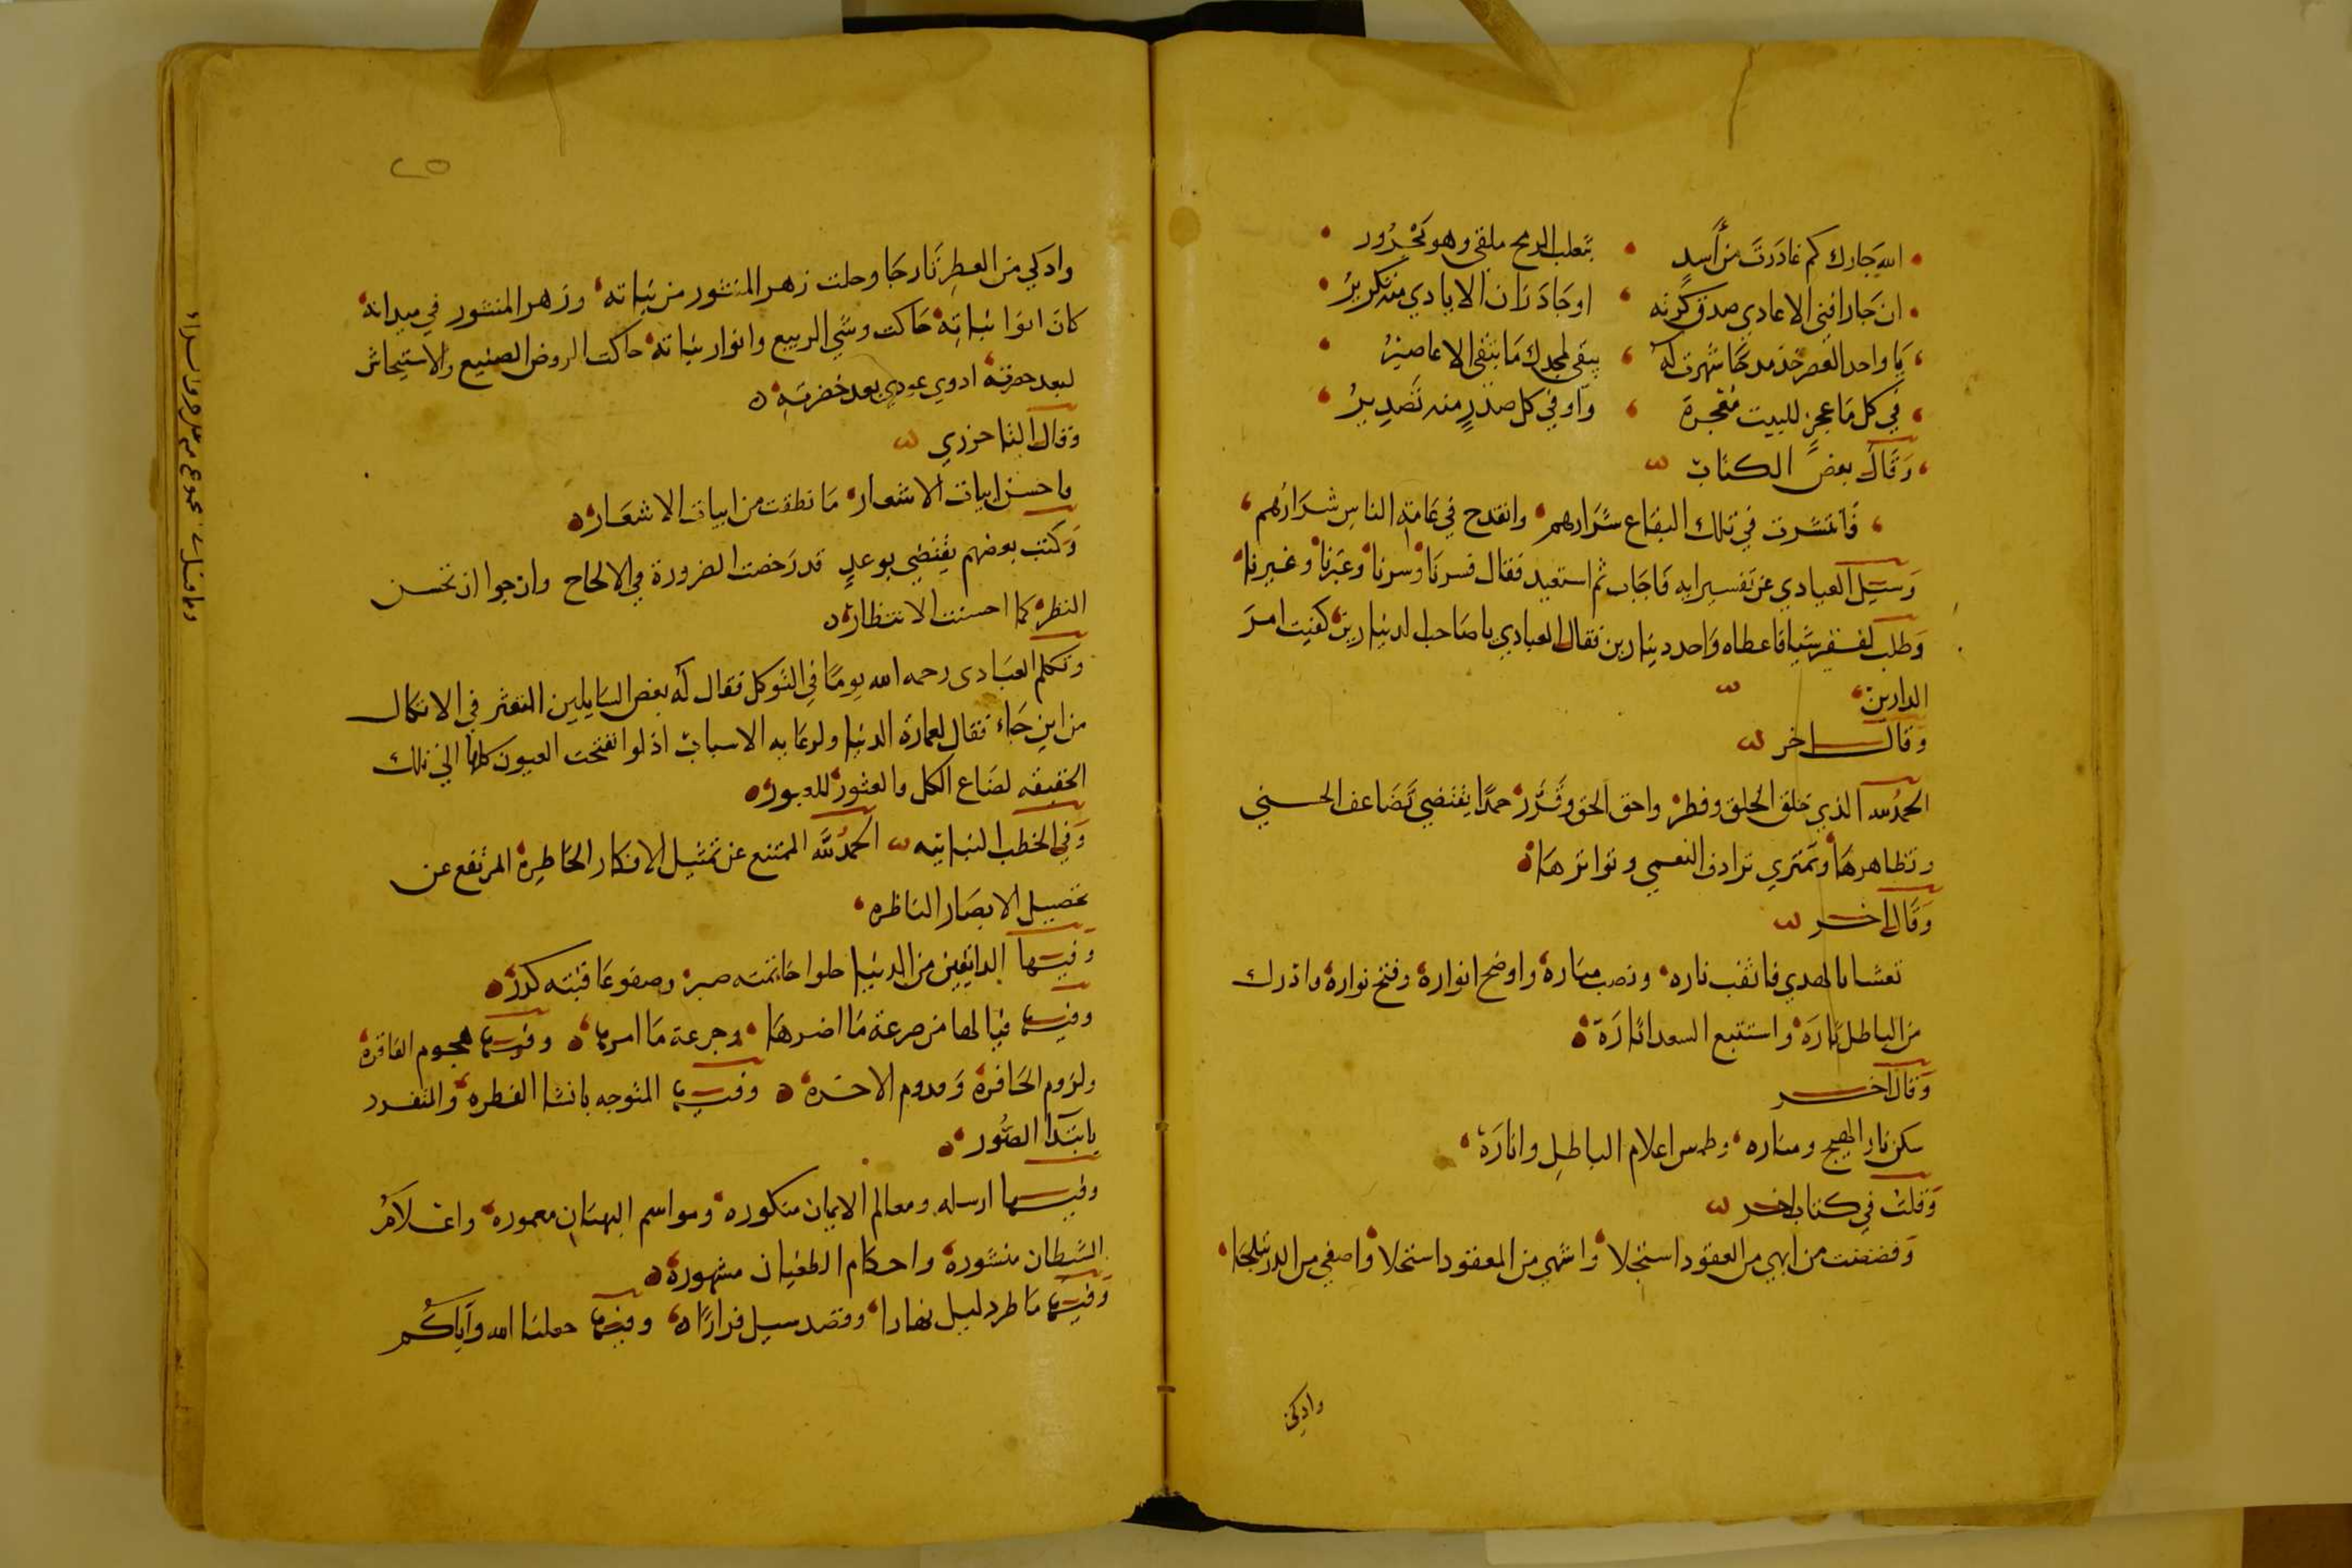 الله جارك كم غادرت من أسد بثعلب الرمح ملقى وهو مجرور
ان جار افنى الاعادي صدق كرته او جاد زان الايادي منه تكرير
يا واحد العصر خذ مدحا شهرت له يبقى لمجدك ما تبقى الاعاصير
في كل ما عجز للبيت معجزة وأو في كل صدر منه تصدير
وقال بعض الكتاب
فانتشرت في تلك البقاع شرارهم وانقدح في عامة الناس شرارهم
وسئل العبادي عن تفسير ايه فاجاب ثم استعيد فقال فسرنا وسرنا وعبرنا وغبرنا
وطلب لفقير شيا فاعطاه واحد دينارين فقال العبادي يا صاحب الدينارين كفيت امر
الدارين
وقال اخر
الحمد لله الذي خلق الخلق وفطر واحق الحق وقرر حمدا يقتضي تضاعف الحسنى
وتظاهرها وتمتري ترادف النعمى وتواترها
وقال اخر
بالهدي فاثقب ناره ونصب مناره واوضح انواره وفتح نواره وادرك
من الباطل ثاره واستتبع السعد اثاره
وقال اخر
سكن نار الهيج ومناره وطمس اعلام الباطل واثاره
وقلت في كتاب اخر
وفضضت من ابهى من العقود استجلا واشهى من المعقود استحلا واصفى من الدر
واذكى
٢٥
واذكى من العطر تارجا وحلت زهر المنثور من بنانه وزهر المنثور في ميدانه
كان انوا بنانه حاكت وشي الربيع وانوار بنانه حاكت الروض الصنيع والاستيحاش
لبعد حضرته اذوى عودي بعد خضرته
وقال الباخرزي
واحسن ابيات الاشعار ما نطقت من ابيات الاشعار
وكتب بعضهم يقتضي بوعد قد رخصت الضرورة في الالحاح وارجوا ان تحسن
النظر كما احسنت الانتظار
وتكلم العبادى رحمه الله يوما في التوكل فقال له بعض السايلين التعثر في الاتكال
من اين جاء فقال لعمارة الدنيا به الاسباب اذ لو انفتحت العيون كلها الى تلك
الحقيقه لضاع الكل والعثور للعبور
وفي الخطب النباتيه الحمد لله الممتنع عن تمثيل الافكار الخاطرة المرتفع عن
تحصيل الابصار الناظره
وفيها الدايقين من الدنيا حلوا خاتمته صبر وصفو عاقبته كدر
وفيها فيا لها من صرعة ما اضرها وجرعة ما امرها وفيها هجوم الفاقرة
ولزوم الحافرة وقدوم الاخرة وفيها المتوحد بانشا الفطره والمتفرد
بابتدا الصور
وفيها ارسله ومعالم الايمان منكوره ومواسم البهتان معموره واعلام
الشيطان منشورة واحكام الطغيان مشهورة
وفيها ما طرد ليل نهارا وقصد سيل قرارا وفيها جعلنا الله واياكم